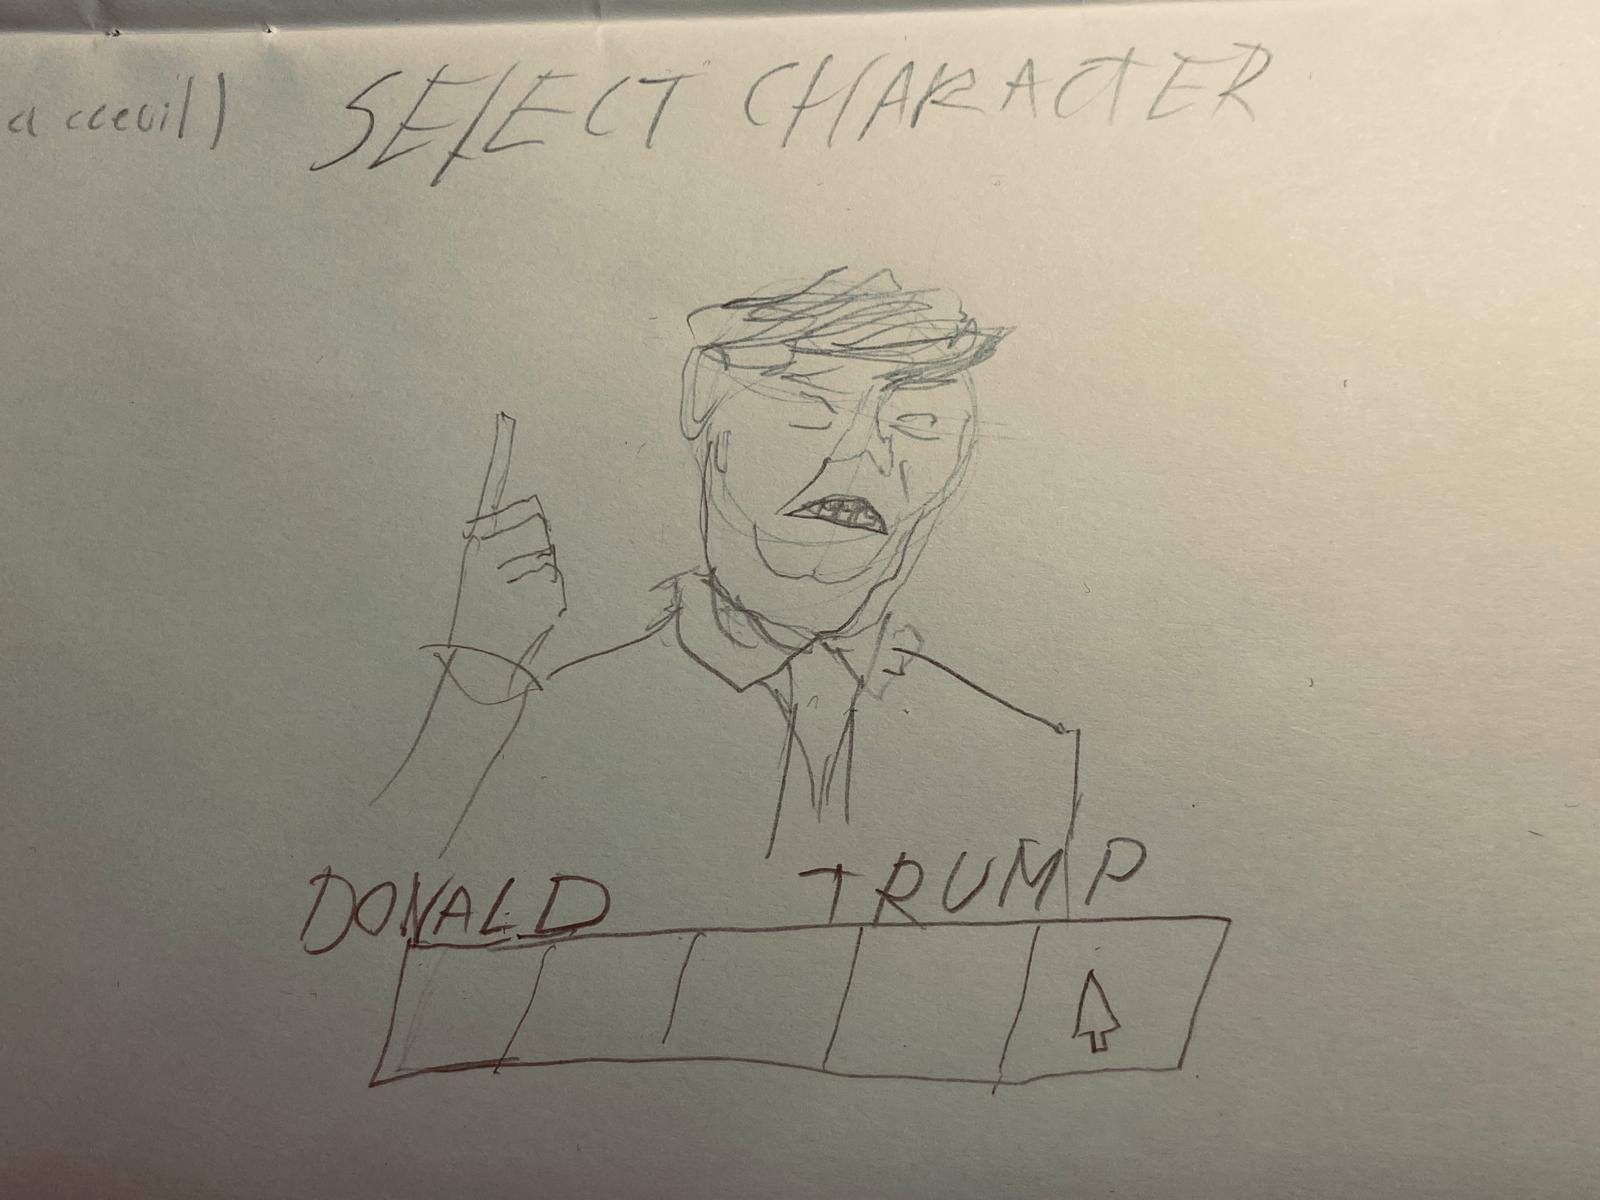 accevil)
SELECT CHARACTER
DONALD TRUMP